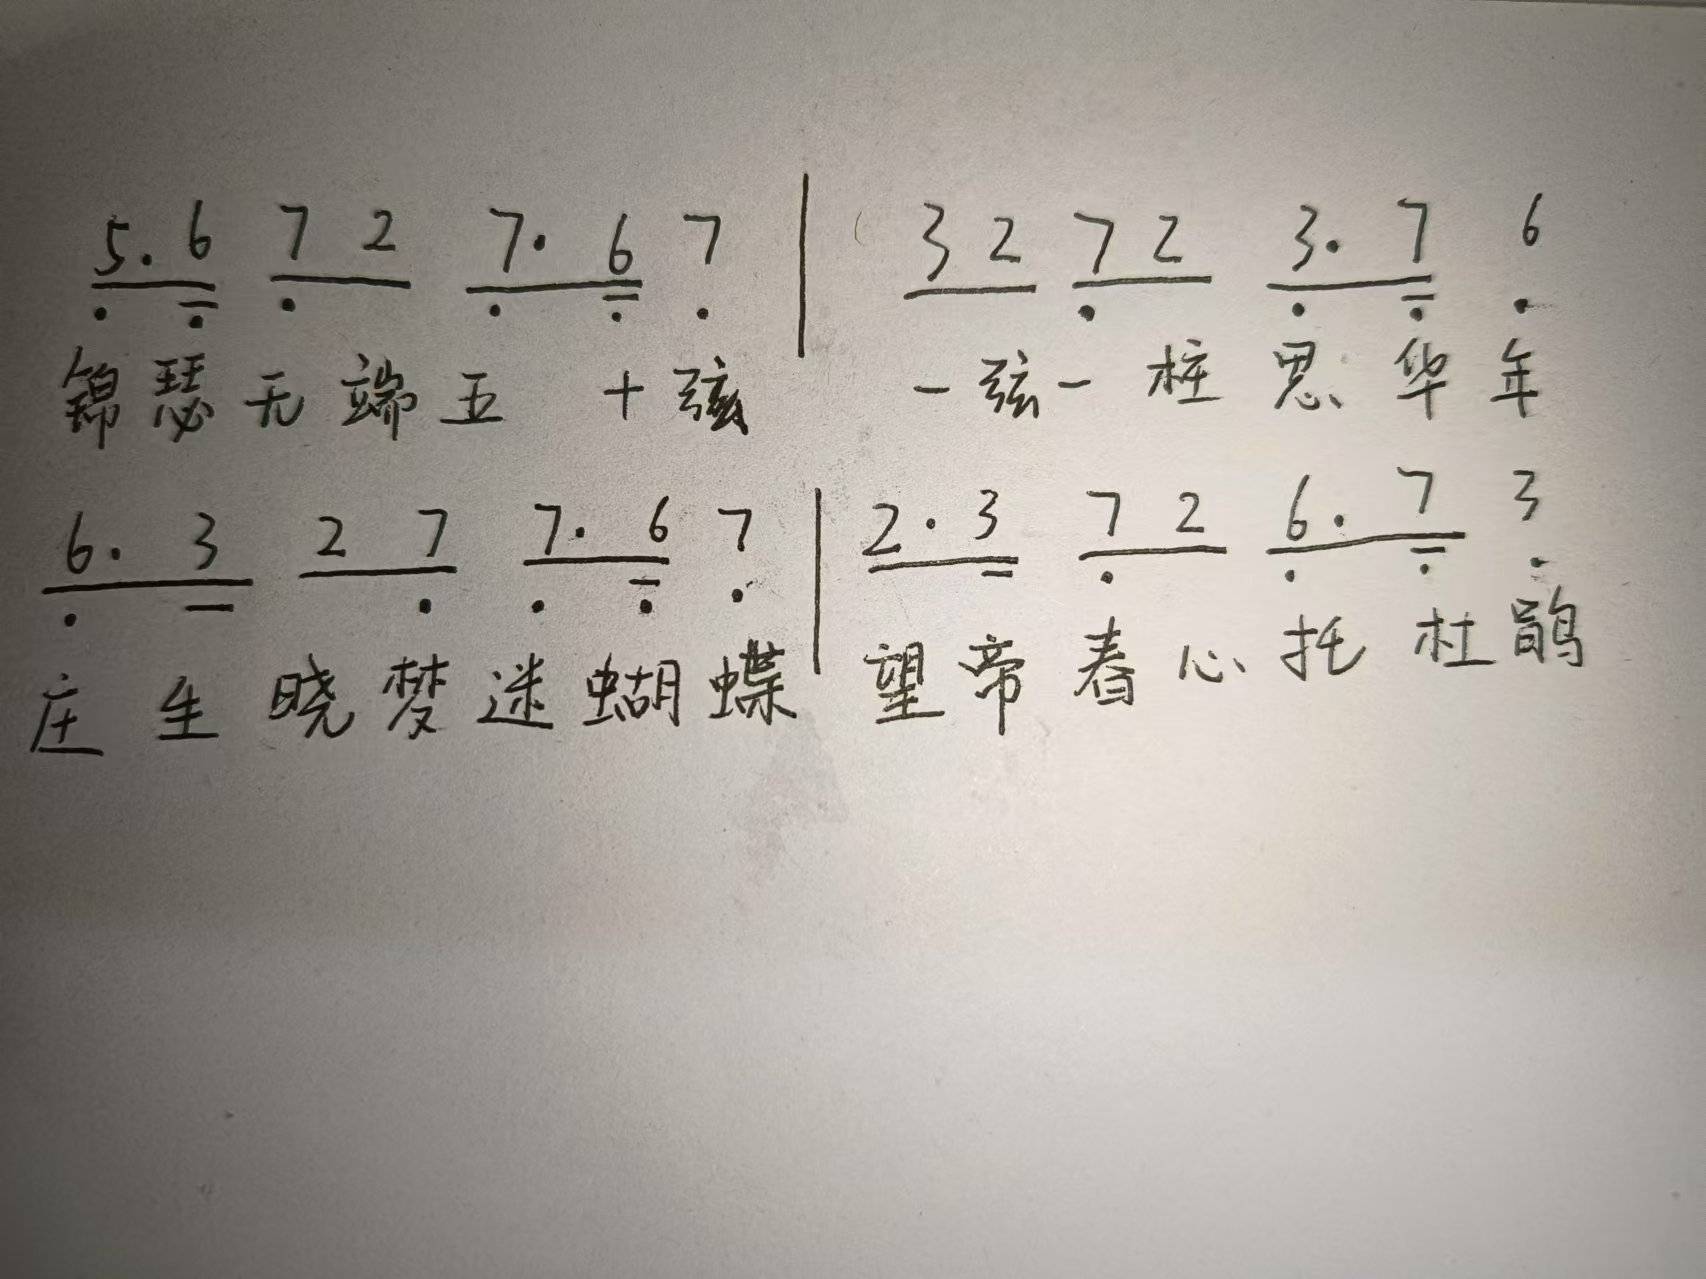 5. 6 7 2 7. 6 7 | 3 2 7 2 3. 7 6
锦瑟无端五十弦 一弦一柱思华年
6. 3 2 7 7. 6 7 | 2. 3 7 2 6. 7 3
庄生晓梦迷蝴蝶 望帝春心托杜鹃